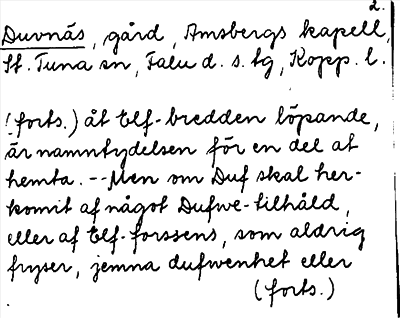 2.
Duvnäs, gård, Amsbergs kapell,
St. Tuna sn, Falu d. s. tg, Kopp. l.
(forts.) åt Elf-bredden löpande,
är namntydelsen för en del at
hemta. -- Men om Duf skal her-
komit af något Dufwe-tilhåld,
eller af Elf-forssens, som aldrig
fryser, jemna dufwenhet eller
(forts.)